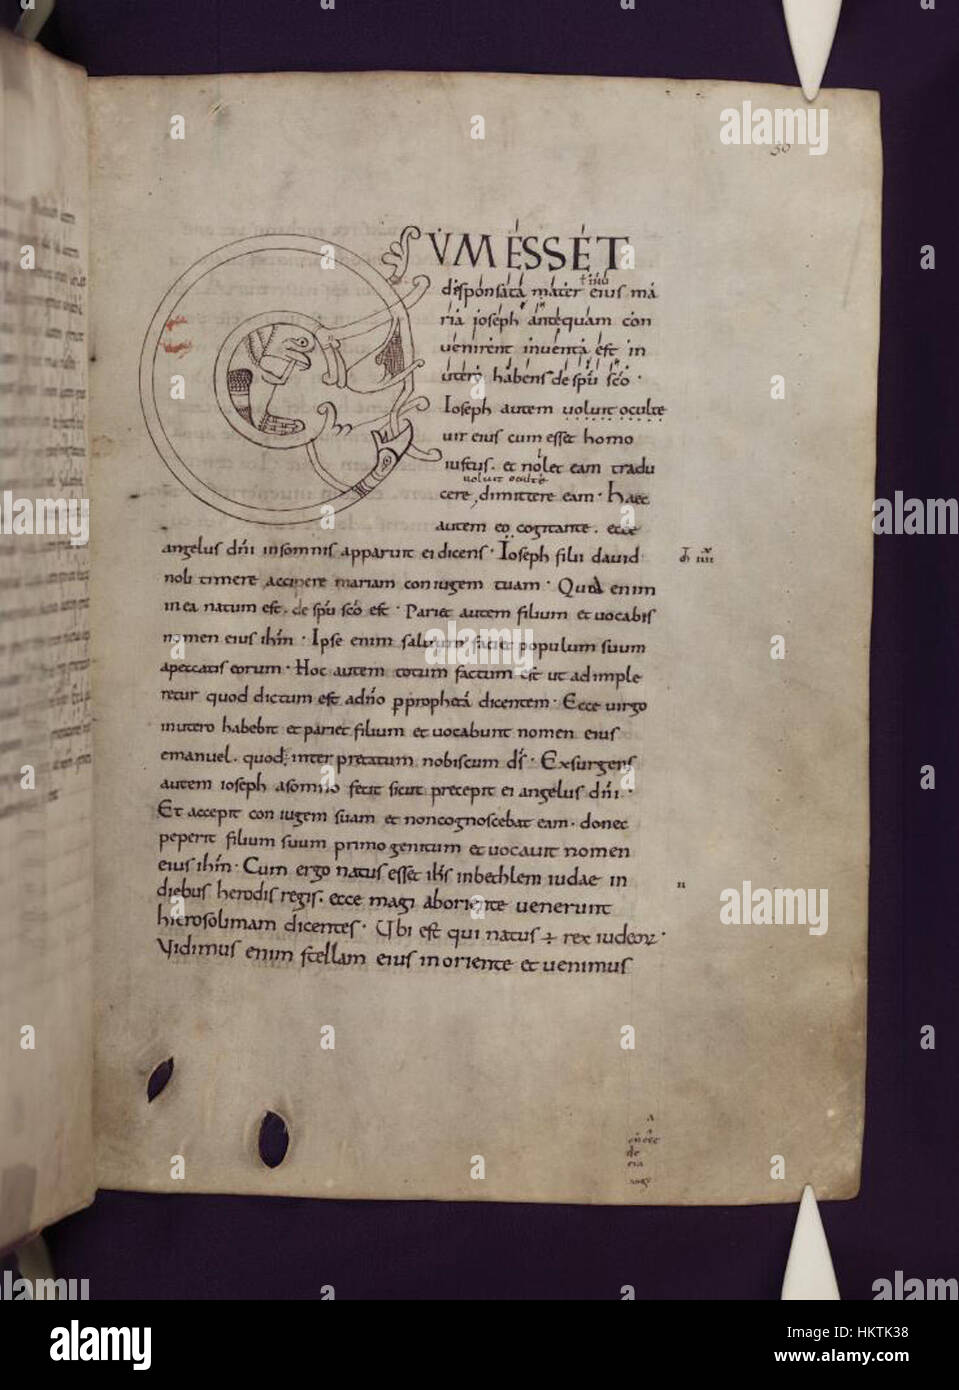 30
CUM ESSET
disponsata mater eius ma
ria ioseph antequam con
uenirent inuenta est in
utero habens de spu sco ·
Ioseph autem uoluit occulte
uir eius cum esset homo
iustus · et nollet eam tradu
uoluit occulte
cere, dimittere eam · Haec
autem eo cogitante · ecce
angelus dni insomnis apparuit ei dicens · Ioseph filii dauid
noli timere accipere mariam coniugem tuam · Quod enim
in ea natum est · de spu sco est · Pariet autem filium et uocabis
nomen eius ihm · Ipse enim saluum faciet populum suum
apeccatis eorum · Hoc autem totum factum est ut adimple
retur quod dictum est adno p prophetā dicentem · Ecce uirgo
inutero habebit et pariet filium et uocabunt nomen eius
emanuel · quod; interpretatum nobiscum ds · Exsurgens
autem ioseph asomno fecit sicut precepit ei angelus dni ·
Et accepit coniugem suam et noncognoscebat eam · donec
peperit filium suum primogenitum et uocauit nomen
eius ihm · Cum ergo natus esset ihs inbethlem iudae in
diebus herodis regis · ecce magi aboriente uenerunt
hierosolimam dicentes · Ubi est qui natus ÷ rex iudeoꝝ ·
Vidimus enim stellam eius inoriente et uenimus
alamy
a
alamy stock photo
HKTK38
www.alamy.com